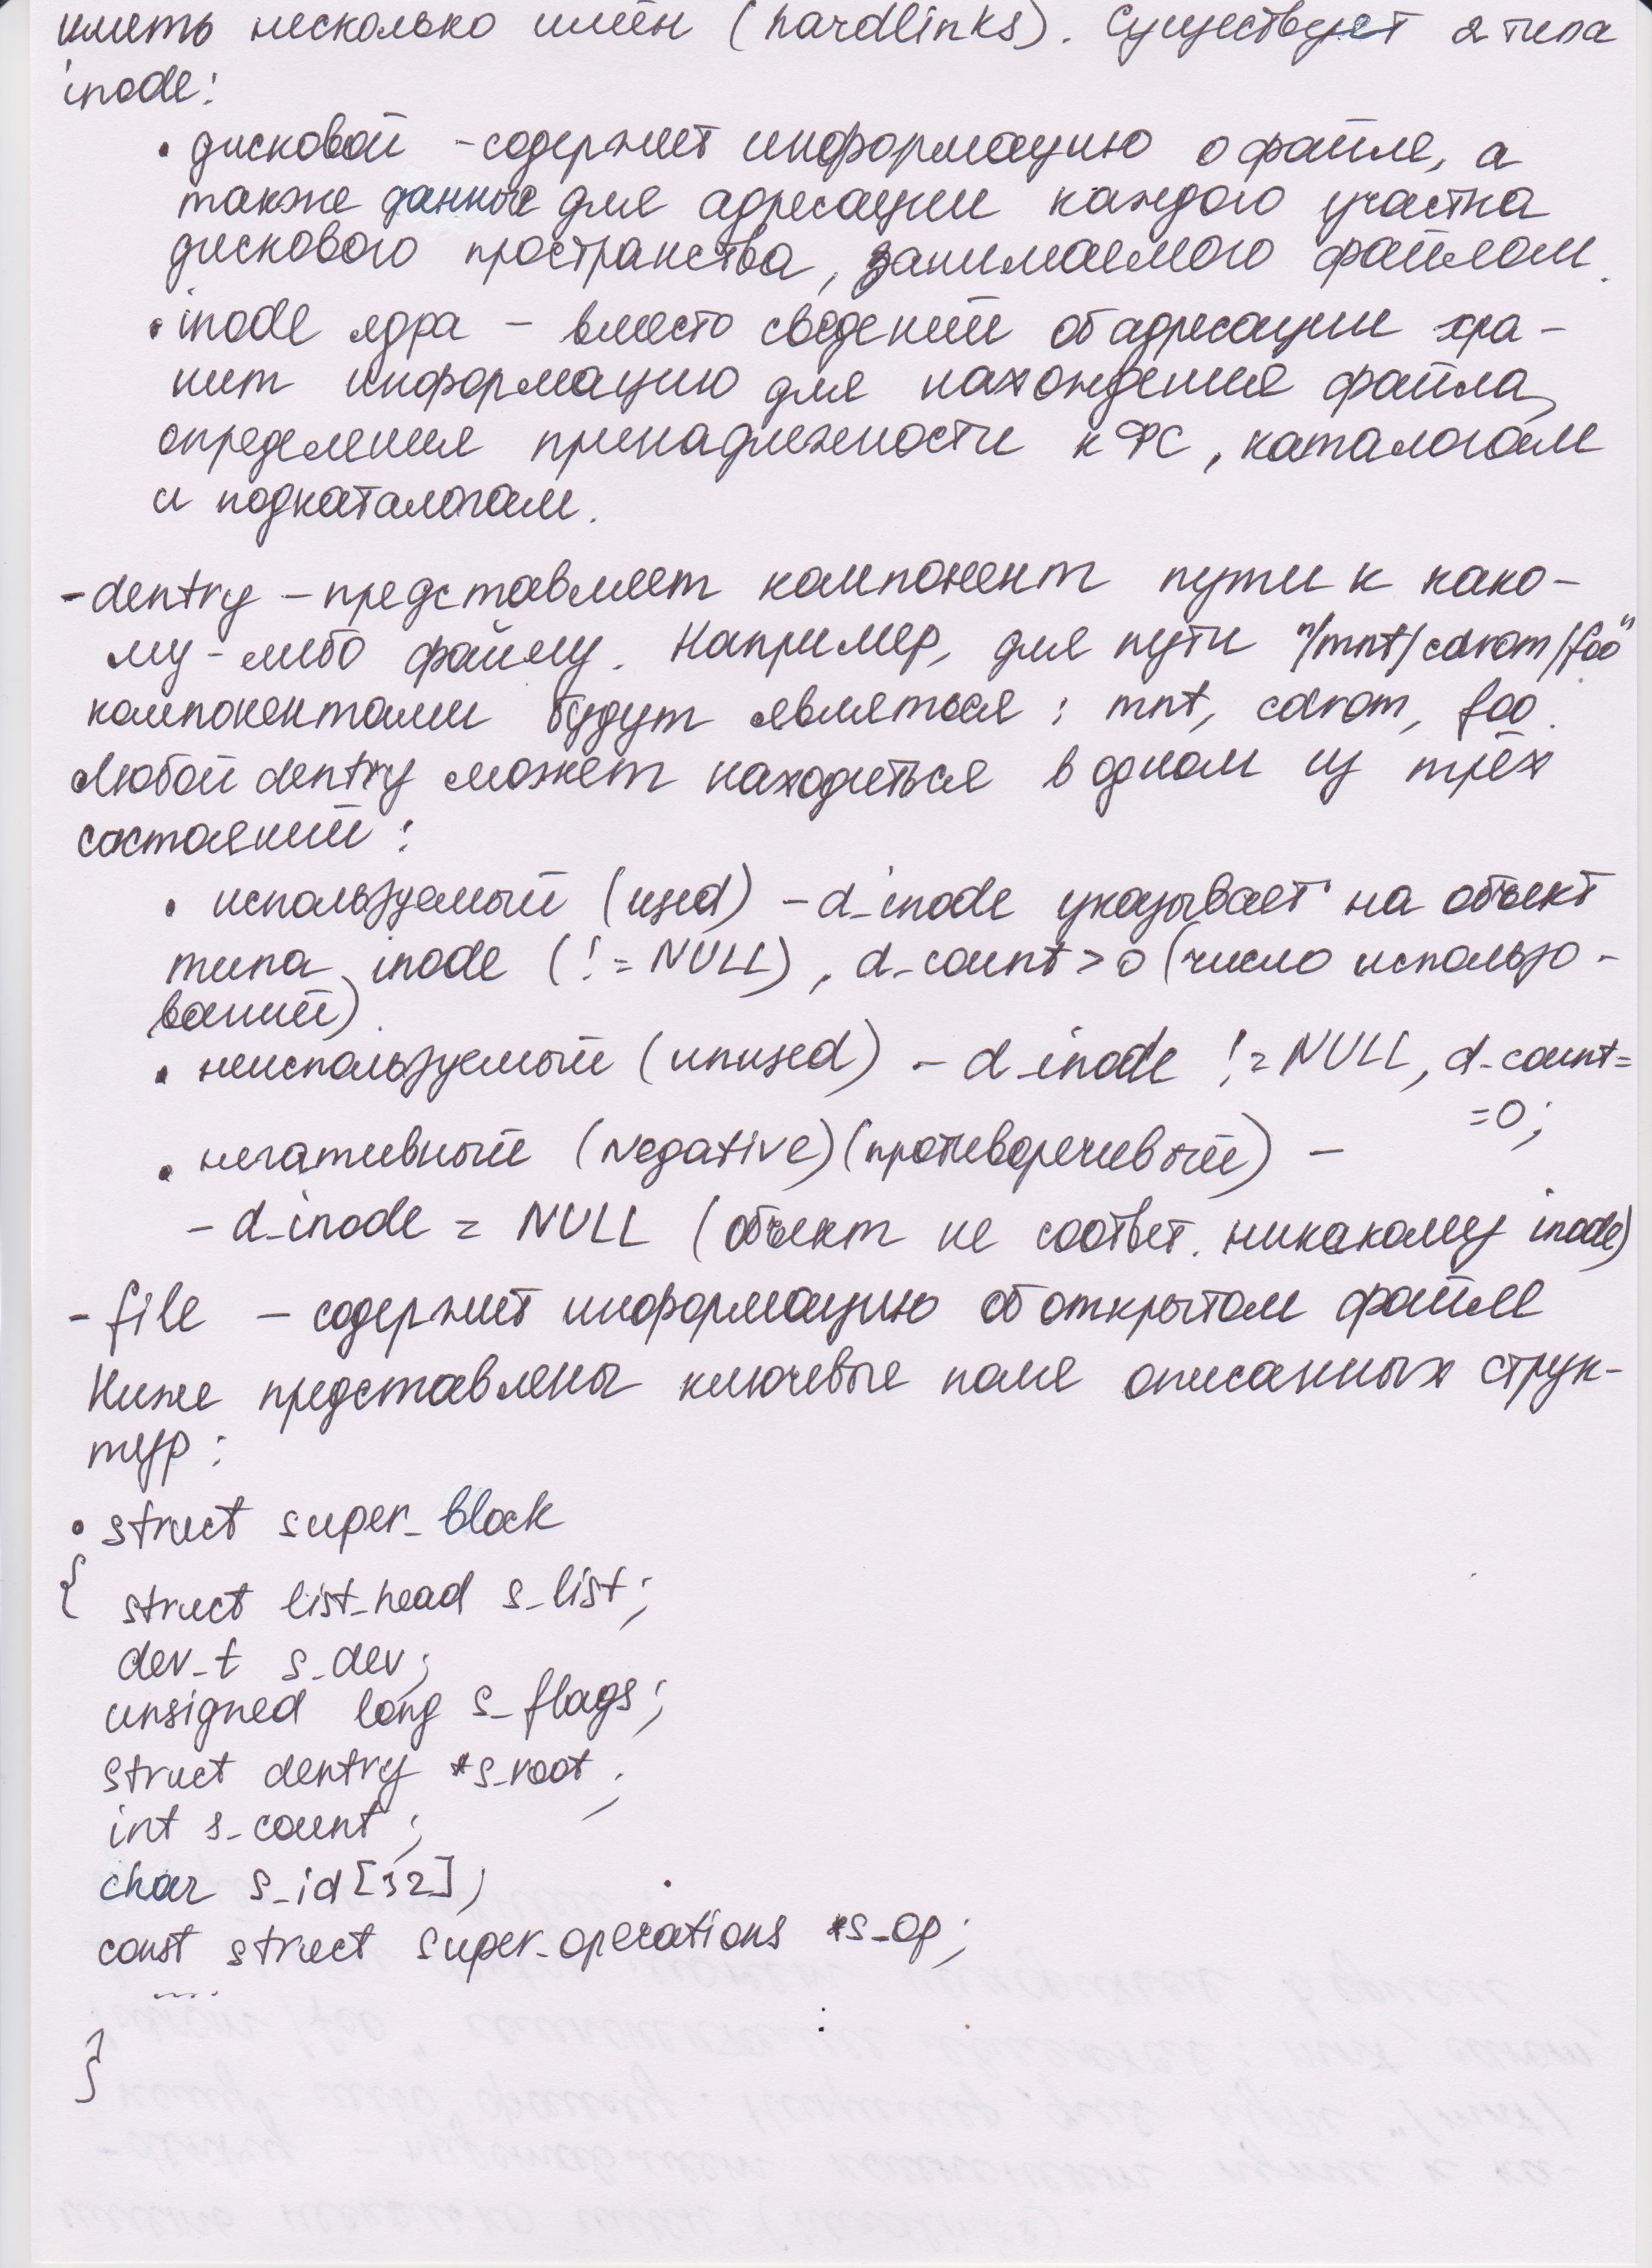 иметь несколько имён (hardlinks). Существует 2 типа
inode:
• дисковой - содержит информацию о файле, а
также данные для адресации каждого участка
дискового пространства, занимаемого файлом.
• inode ядра - вместо сведений об адресации хра-
нит информацию для нахождения файла,
определения принадлежности к ФС, каталогам
и подкаталогам.
- dentry - представляет компонент пути к како-
му-либо файлу. Например, для пути "/mnt/cdrom/foo"
компонентами будут являться: mnt, cdrom, foo.
Любой dentry может находиться в одном из трёх
состояний:
• используемый (used) - d_inode указывает на объект
типа inode (!= NULL), d_count > 0 (число использо-
ваний).
• неиспользуемый (unused) - d_inode != NULL, d_count=
=0;
• негативный (negative) (противоречивый) -
- d_inode = NULL (объект не соответ. никакому inode)
- file - содержит информацию об открытом файле
Ниже представлены ключевые поля описанных струк-
тур:
• struct super_block
{ struct list_head s_list;
dev_t s_dev;
unsigned long s_flags;
struct dentry *s_root;
int s_count;
char s_id[32];
const struct super_operations *s_op;
....
}